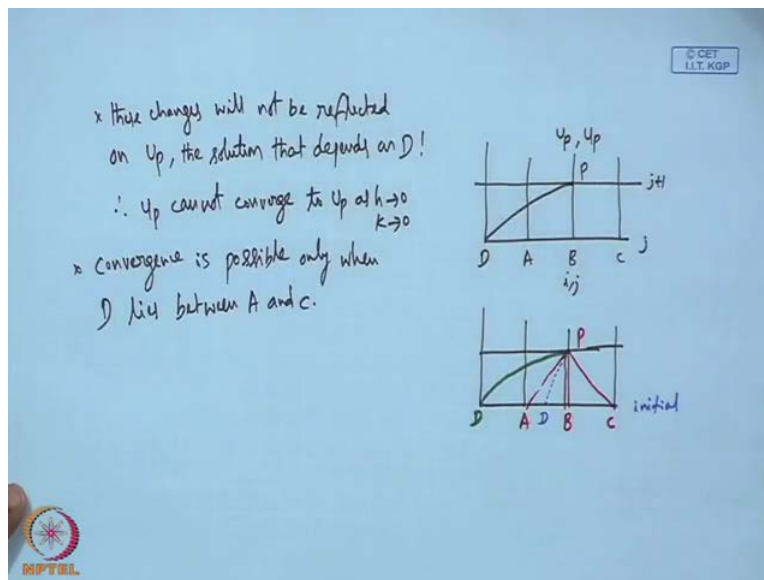 © CET
I.I.T. KGP
* these changes will not be reflected
on Up, the solution that depends on D!
∴ Up cannot converge to Up as h→0
k→0
* Convergence is possible only when
D lies between A and C.
Up, Up
P
j+1
D A B C j
i,j
P
D A D B C initial
NPTEL